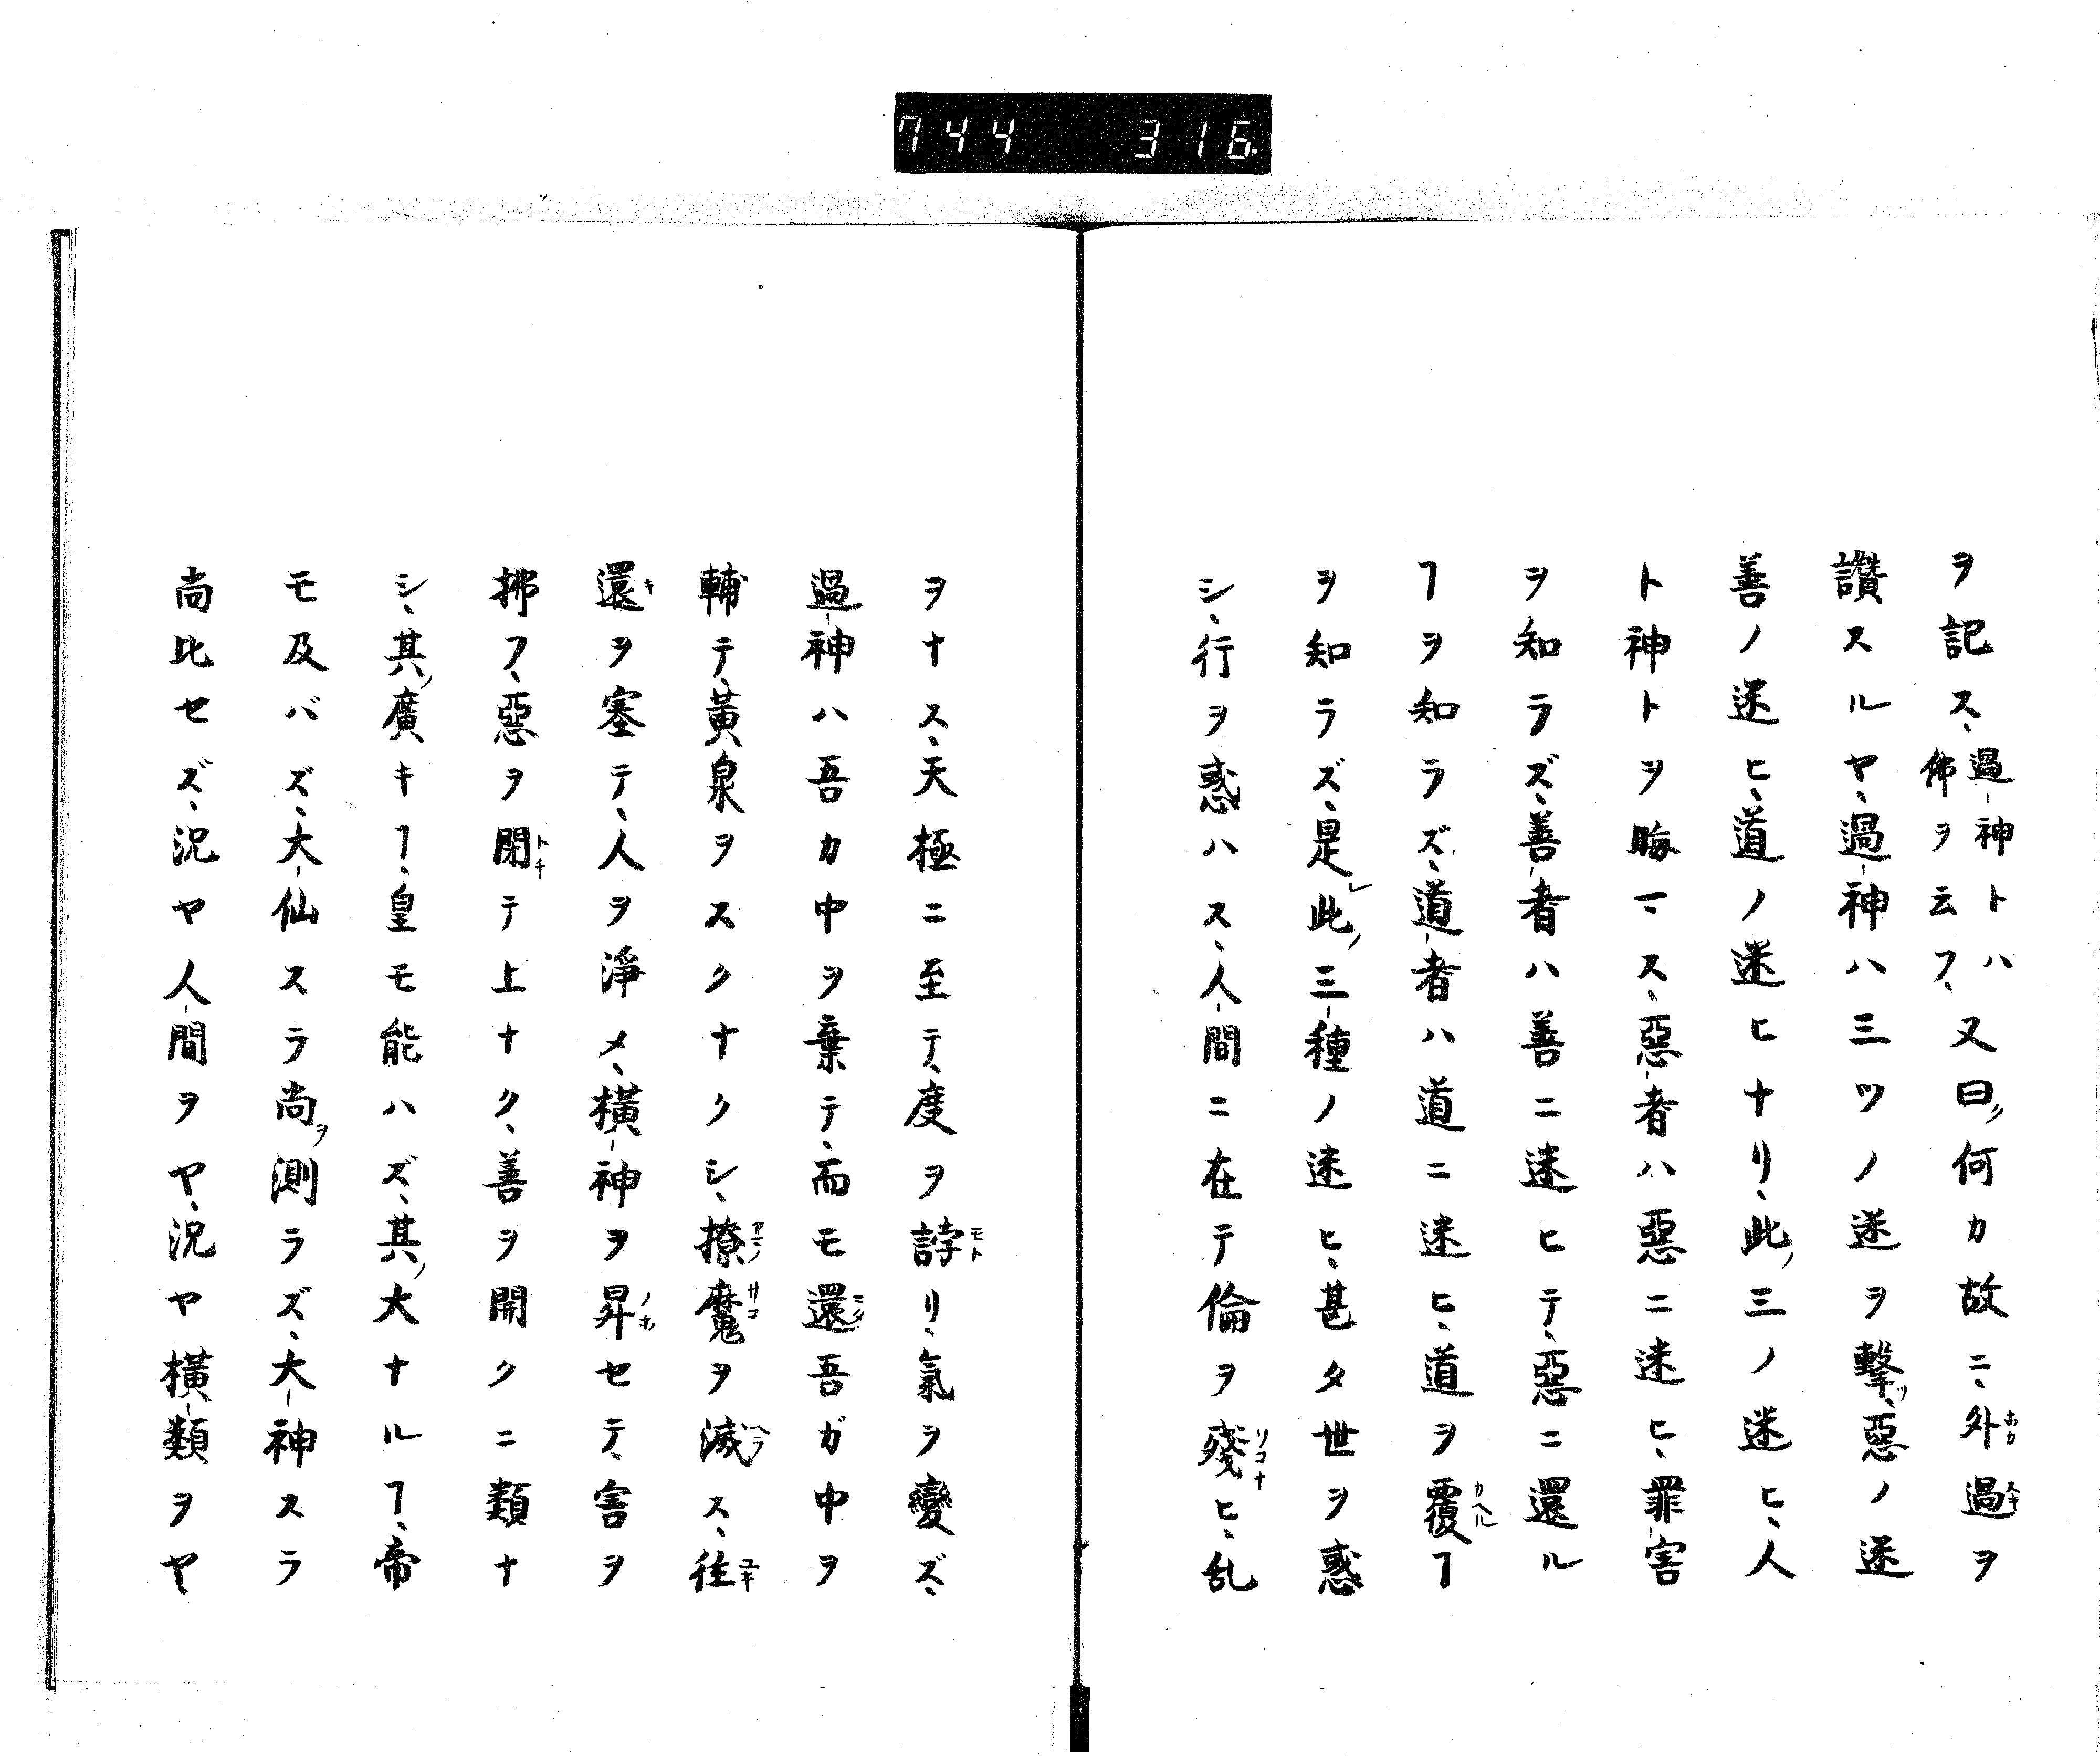 744 316
ヲ記ス、過-神トハ佛ヲ云フ、又曰ク何カ故ニ、外過ヲ
讚スルヤ、過-神ハ三ツノ迷ヲ撃ツ、惡ノ迷
善ノ迷ヒ、道ノ迷ヒナリ、此ノ三ノ迷ヒ、人
ト神トヲ晦マス、惡-者ハ惡ニ迷ヒ、罪-害
ヲ知ラズ、善-者ハ善ニ迷ヒテ、惡ニ還ル
ヿヲ知ラズ、道-者ハ道ニ迷ヒ、道ヲ覆ヿ
ヲ知ラズ、是レ此ノ三-種ノ迷ヒ、甚タ世ヲ惑
シ、行ヲ惑ハス、人-間ニ在テ倫ヲ殘ヒ、乱
ヲナス、天極ニ至テ、度ヲ誖リ、氣ヲ變ズ、
過-神ハ吾カ中ヲ棄テ、而モ還吾ガ中ヲ
輔テ、黄泉ヲスクナクシ、撩魔ヲ滅ス、徃
還ヲ塞テ、人ヲ淨メ、横-神ヲ昇セテ、害ヲ
拂フ、惡ヲ閉テ上ナク、善ヲ開クニ類ナ
シ、其ノ廣キヿ、皇モ能ハズ、其ノ大ナルヿ、帝
モ及バズ、大-仙スラ尚ヲ測ラズ、大-神スラ
尚比セズ、況ヤ人-間ヲヤ、況ヤ横-類ヲヤ、